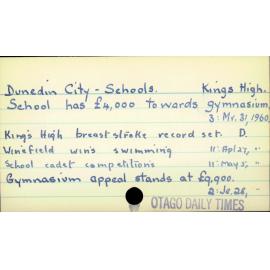 Dunedin City - Schools. Kings High.
School has £4,000 towards gymnasium,
3: Mr. 31, 1960.
King's High breast stroke record set. D.
Winsfield wins swimming 11: Apl 27, "
School cadet competitions 11: May 5, "
Gymnasium appeal stands at £9,900.
2: Je. 28, "
OTAGO DAILY TIMES